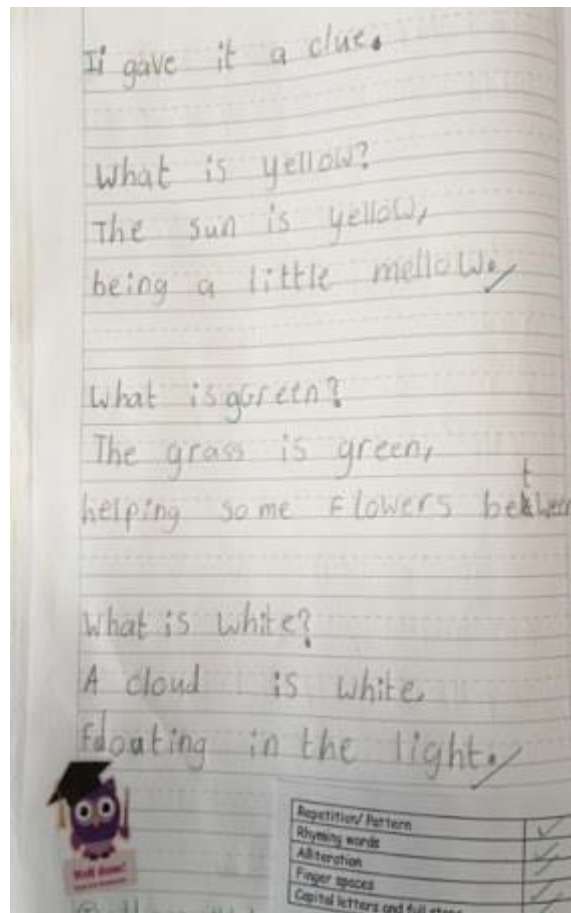 Ii gave it a clue.
What is yellow?
The sun is yellow,
being a little mellow.
What is green?
The grass is green,
helping some flowers between
What is white?
A cloud is white,
floating in the light.
Well done!
Repetition/ Pattern
Rhyming words
Alliteration
Finger spaces
Capital letters and full stops